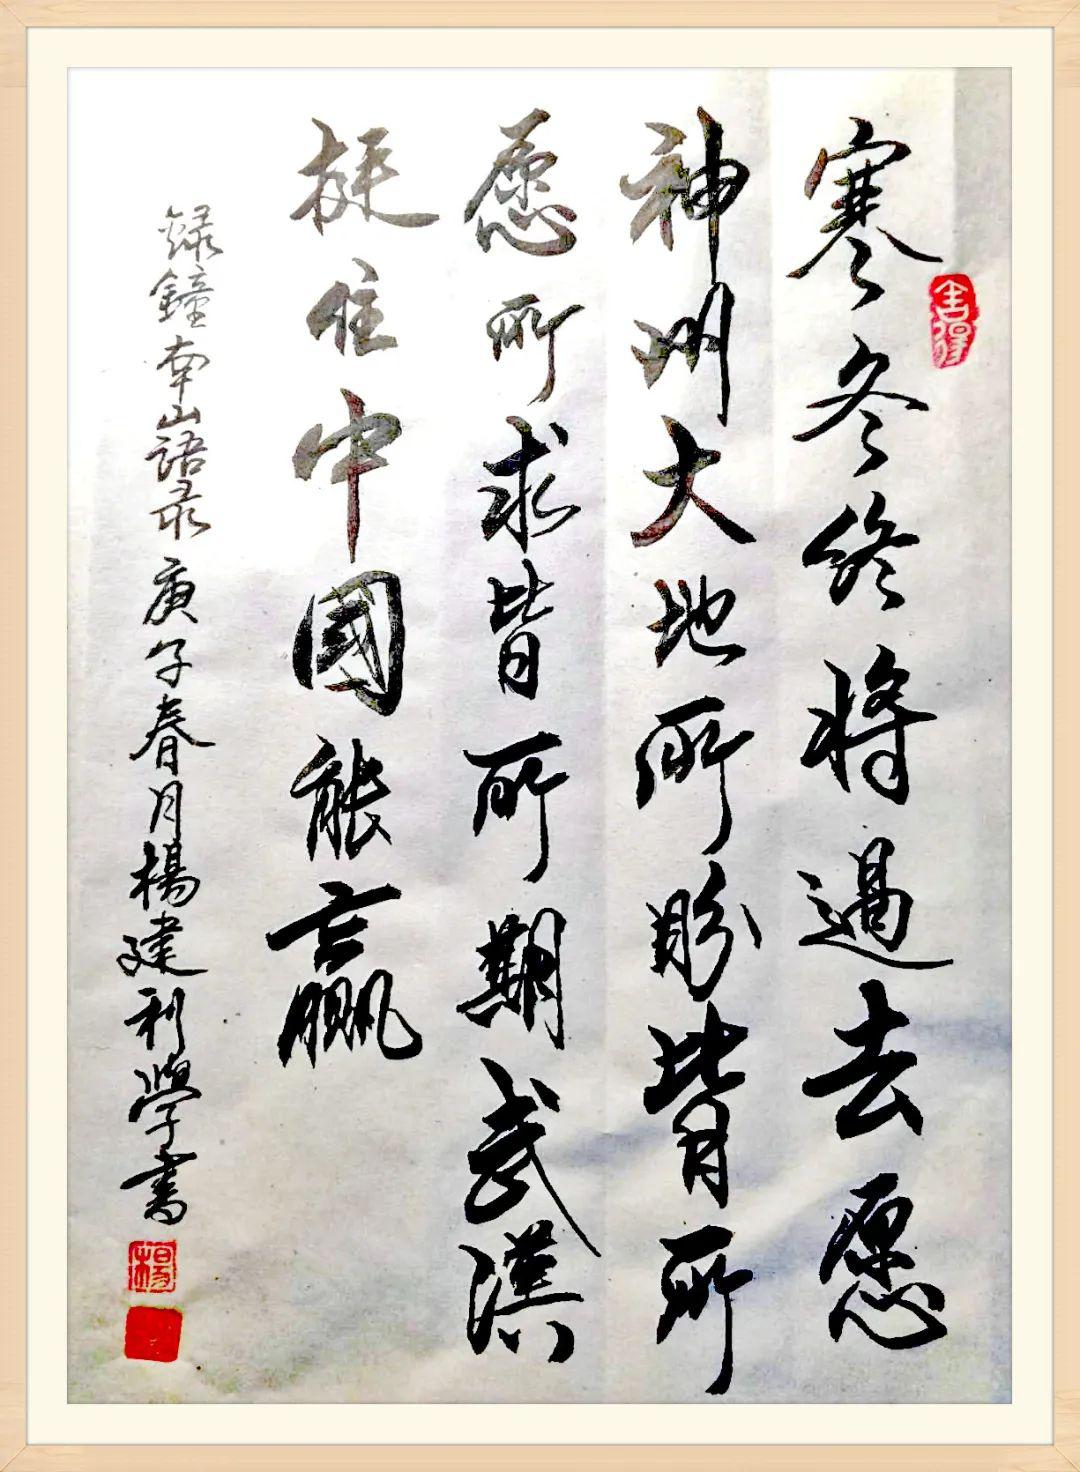 寒冬终将过去愿
神州大地所盼皆所
愿所求皆所期武漢
挺住中國能赢
録鐘南山語录庚子春月楊建利學書
舍得
楊